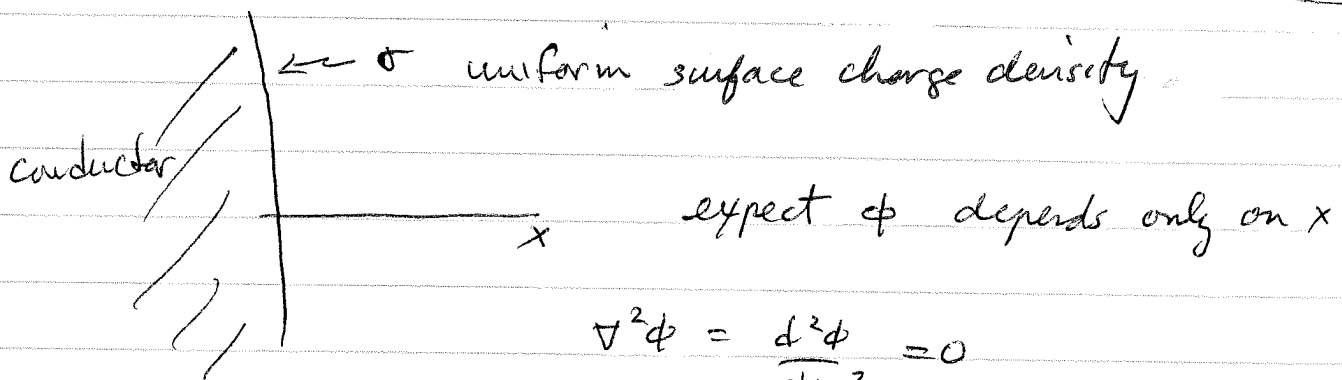 ← σ uniform surface charge density.
conductor
expect ϕ depends only on x
x
∇²ϕ = d²ϕ/dx² = 0